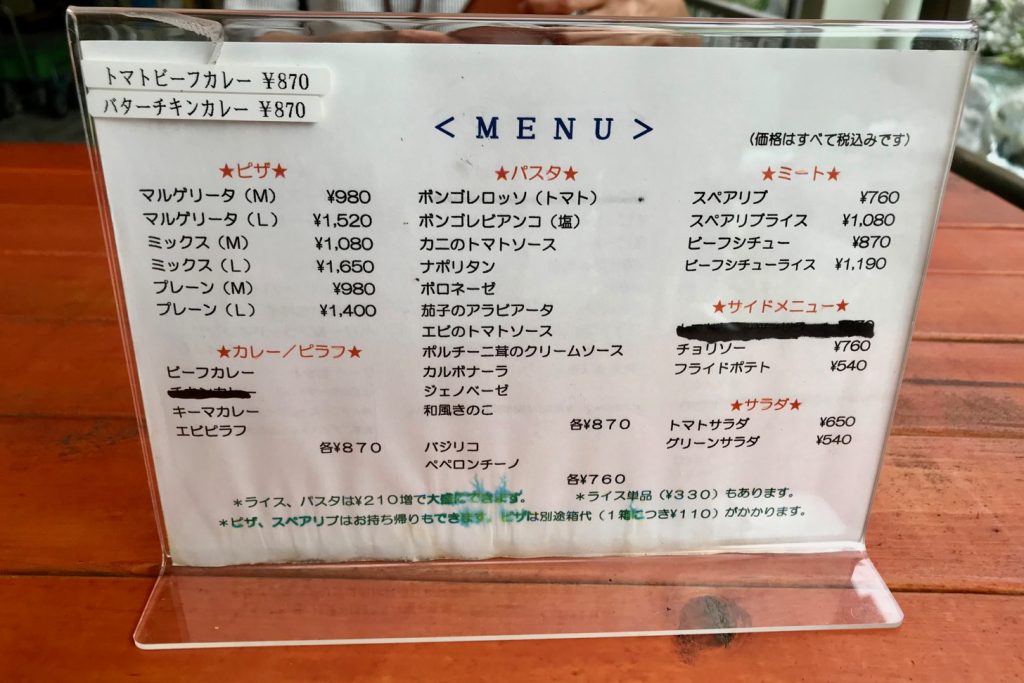 トマトビーフカレー ¥870
バターチキンカレー ¥870
<MENU>
(価格はすべて税込みです)
★ピザ★
マルゲリータ(M) ¥980
マルゲリータ(L) ¥1,520
ミックス(M) ¥1,080
ミックス(L) ¥1,650
プレーン(M) ¥980
プレーン(L) ¥1,400
★カレー/ピラフ★
ビーフカレー
キーマカレー
エビピラフ
各¥870
★パスタ★
ボンゴレロッソ(トマト)
ボンゴレビアンコ(塩)
カニのトマトソース
ナポリタン
ボロネーゼ
茄子のアラビアータ
エビのトマトソース
ポルチーニ茸のクリームソース
カルボナーラ
ジェノベーゼ
和風きのこ
各¥870
バジリコ
ペペロンチーノ
各¥760
★ミート★
スペアリブ ¥760
スペアリブライス ¥1,080
ビーフシチュー ¥870
ビーフシチューライス ¥1,190
★サイドメニュー★
チョリソー ¥760
フライドポテト ¥540
★サラダ★
トマトサラダ ¥650
グリーンサラダ ¥540
*ライス、パスタは¥210増で大盛にできます。 *ライス単品(¥330)もあります。
*ピザ、スペアリブはお持ち帰りもできます。ピザは別途箱代(1箱につき¥110)がかかります。